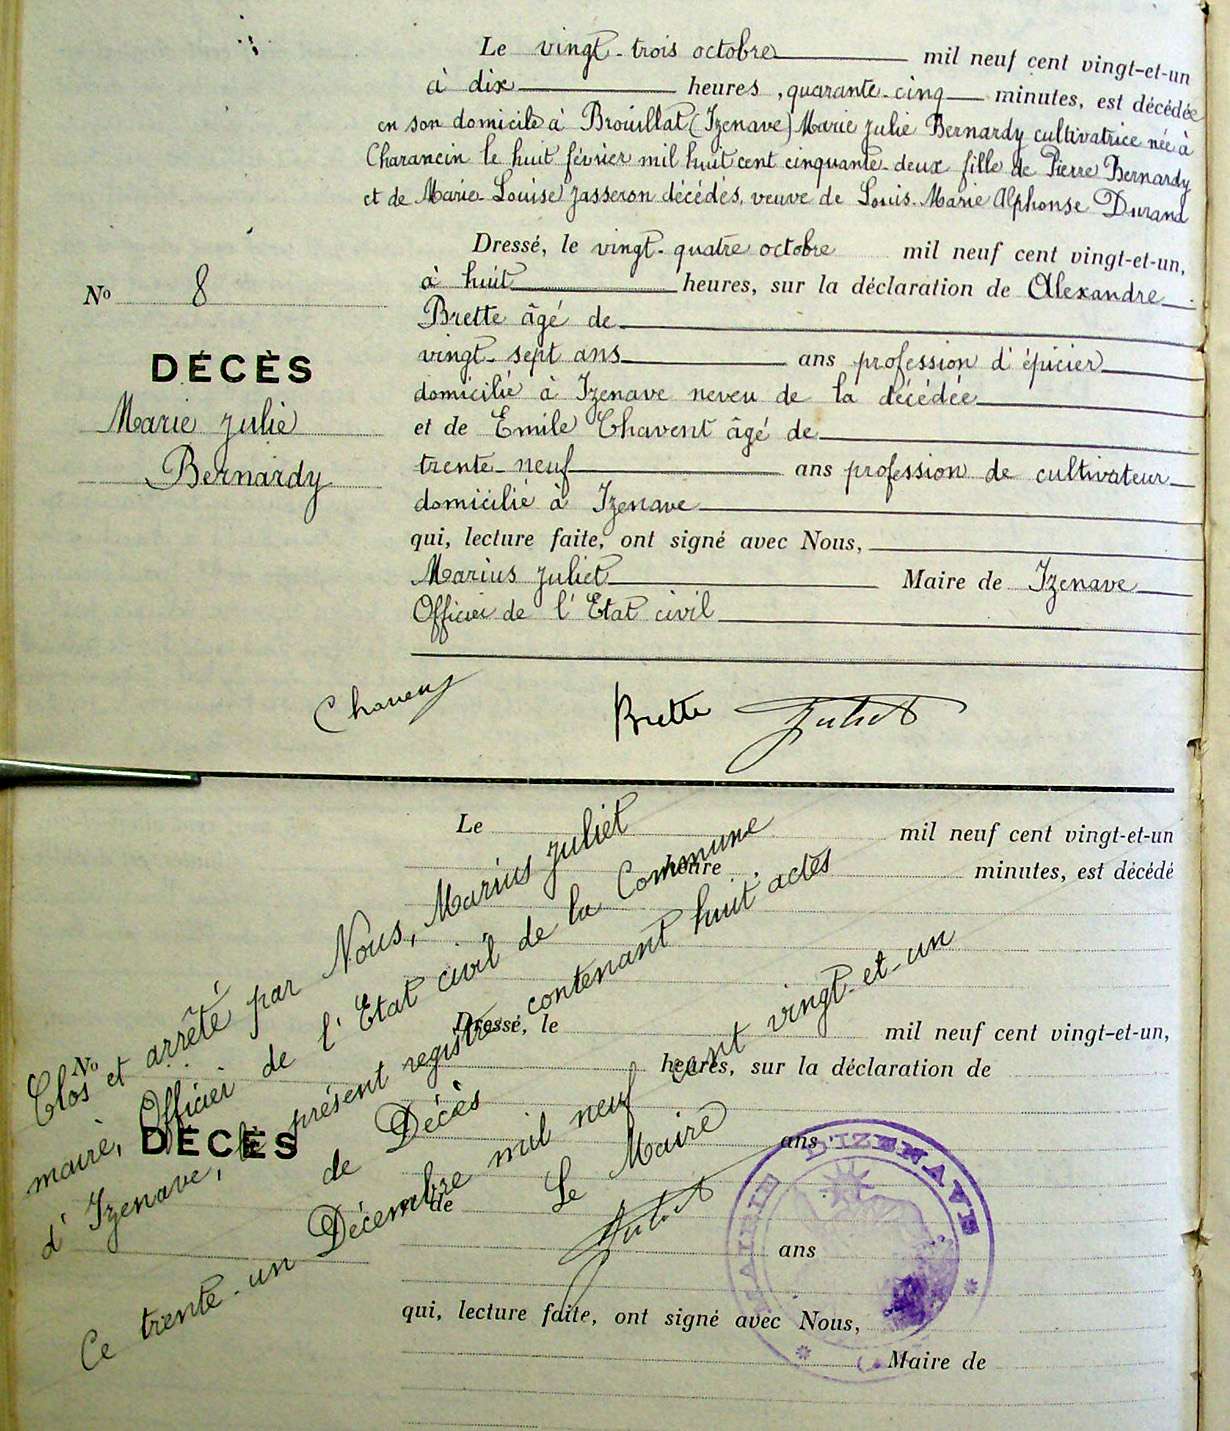 Le vingt-trois octobre mil neuf cent vingt-et-un
à dix heures, quarante-cinq minutes, est décédée
en son domicile à Brouillat (Izenave) Marie Julie Bernardy cultivatrice née à
Charancin le huit février mil huit cent cinquante-deux fille de Pierre Bernardy
et de Marie-Louise Jasseron décédés, veuve de Louis-Marie Alphonse Durand
Dressé, le vingt-quatre octobre mil neuf cent vingt-et-un,
à huit heures, sur la déclaration de Alexandre
Brette âgé de
vingt-sept ans ans profession d'épicier
domicilié à Izenave neveu de la décédée
et de Emile Chavent âgé de
trente-neuf ans profession de cultivateur
domicilié à Izenave
qui, lecture faite, ont signé avec Nous,
Marius Juliet Maire de Izenave
Officier de l'Etat civil
No 8
DÉCÈS
Marie Julie
Bernardy
Brette Juliet
Le mil neuf cent vingt-et-un
heure minutes, est décédé
Dressé, le mil neuf cent vingt-et-un,
heures, sur la déclaration de
ans
de
ans
qui, lecture faite, ont signé avec Nous,
Maire de
No
DÉCÈS
Clos et arrêté par Nous, Marius Juliet
maire, Officier de l'Etat civil de la Commune
d'Izenave, le présent registre contenant huit actes
de Décès
Ce trente-un Décembre mil neuf cent vingt-et-un
Le Maire
Juliet
MAIRIE D'IZENAVE